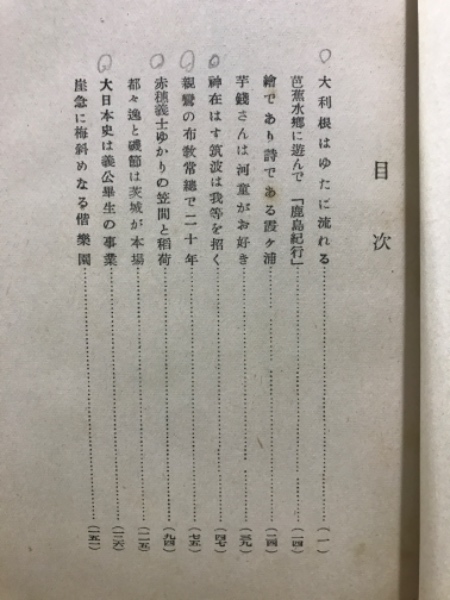 目次
大利根はゆたに流れる……(一)
芭蕉水鄕に遊んで「鹿島紀行」……(一四)
繪であり詩である霞ヶ浦……(二四)
芋錢さんは河童がお好き……(三九)
神在はす筑波は我等を招く……(四七)
親鸞の布敎常總で二十年……(七五)
赤穗義士ゆかりの笠間と稻荷……(九四)
都々逸と磯節は茨城が本場……(一一五)
大日本史は義公畢生の事業……(一三六)
崖急に梅斜めなる偕樂園……(一五一)